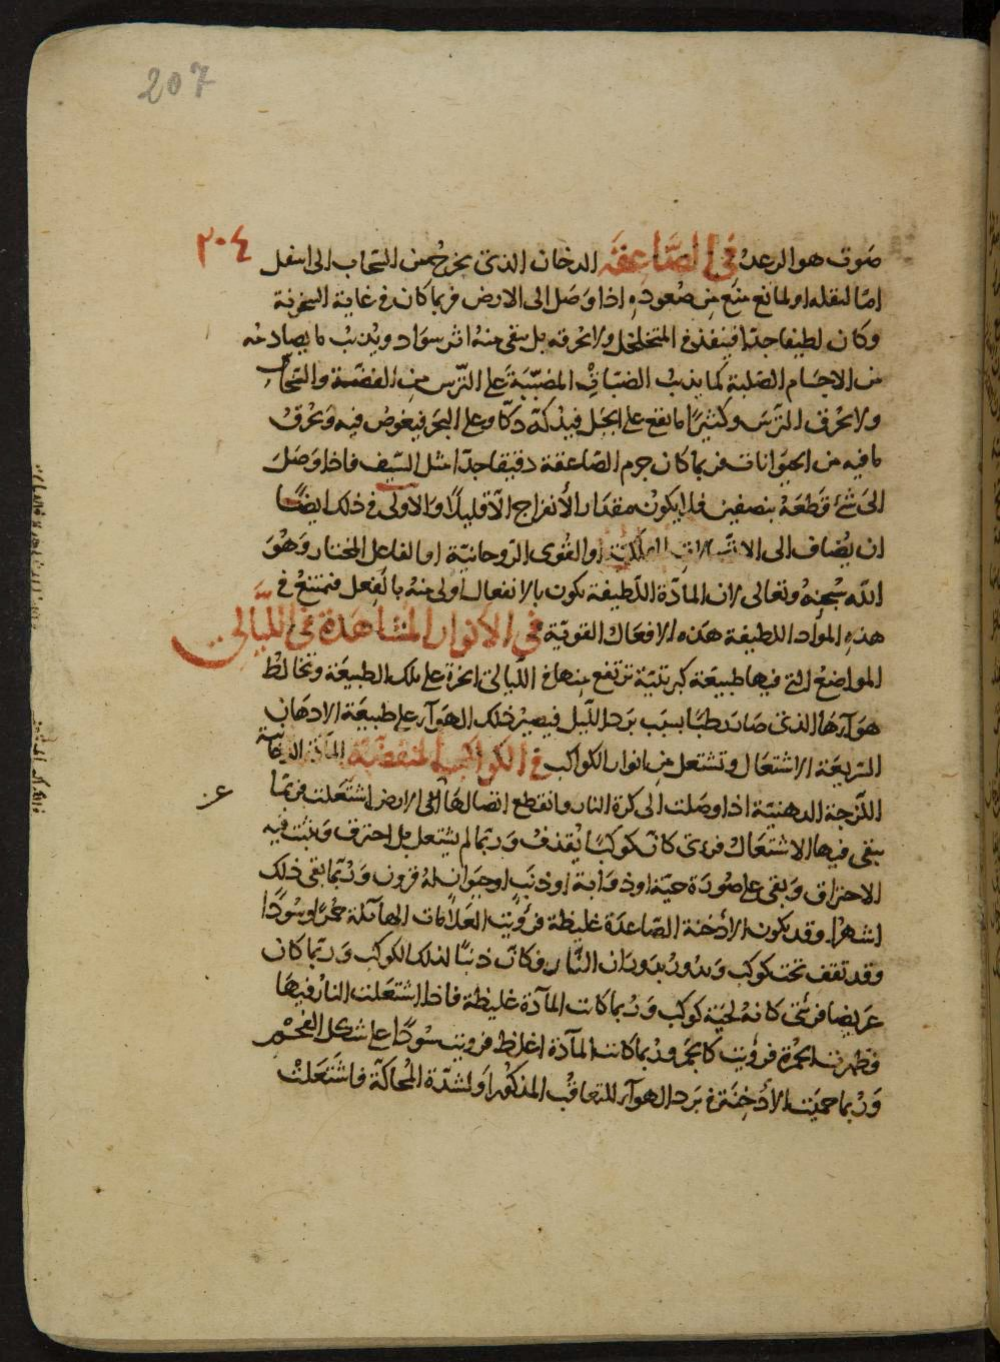 207
٢٠٤
صوت هو الرعد في الصاعقة الدخان الذي يخرج من السحاب الى اسفل
امّا لثقله او لمانع منع من صعوده اذا وصل الى الارض فربما كان في غاية السخونة
وكان لطيفا جدا فينفذ في المتخلخل ولا يحرقه بل يبقى منه اثر سواد ويذيب ما يصادفه
من الاجسام الصلبة كما يذيب الضبّات المضبّبة على الترس من الفضة والنحاس
ولا يحرق الترس وكثيرًا ما يقع على الجبل فيدكّه دكّا وعلى البحر فيغوص فيه ويحرق
ما فيه من الحيوانات وربما كان جرم الصاعقة دقيقا جدّا مثل السيف فاذا وصل
الى شئ قطعه بنصفين فلا يكون مقدار الانفراج الّا قليلًا والاولى في ذلك ايضًا
ان يضاف الى الاتصالات الفلكية او القوى الروحانية او الفاعل المختار وهو
الله سبحنه وتعالى لان المادّة اللطيفة تكون بالانفعال اولى منه بالفعل فيمتنع في
هذه الموادّ اللطيفة هذه الافعال القوية في الانوار المشاهدة في الليالي
المواضع التي فيها طبيعة كبريتية ترتفع منها في الليالي ابخرة على تلك الطبيعة وتخالط
هوآءها الذي صار رطبًا بسبب برد الليل فيصير ذلك الهوآء على طبيعة الادهان
السريعة الاشتعال وتشتعل من انوار الكواكب في الكواكب المنقضّة المادّة الدخانية
اللزجة الدهنية اذا وصلت الى كرة النار وانقطع اتصالها الى الارض اشتعلت فربما
يبقى فيها الاشتعال فرئى كانّ كوكبًا يقذف وربما لم يشتعل بل احترق وثبت فيه
الاحتراق وبقى على صورة حية او ذوابة او ذنب او حيوان له قرون وربما بقى ذلك
اشهرا وقد يكون الادخنة الصاعدة غليظة فرؤيت العلامات الهائلة حمرًا وسودًا
وقد تقف تحت كوكب وتدور بدوران النار فكان ذنبًا لذلك الكوكب وربما كان
عريضا فرئى كانه لحية كوكب وربما كانت المادّة غليظة فاذا اشتعلت النار فيها
فظهرت الحمرة فرؤيت كالجمر وربما كانت المادّة اغلظ فرويت سودًا على شكل الفحم
وربما حميت الادخنة في برد الهوآء للتعاقب المذكور او لشدّة المحاكّة فاشتعلت